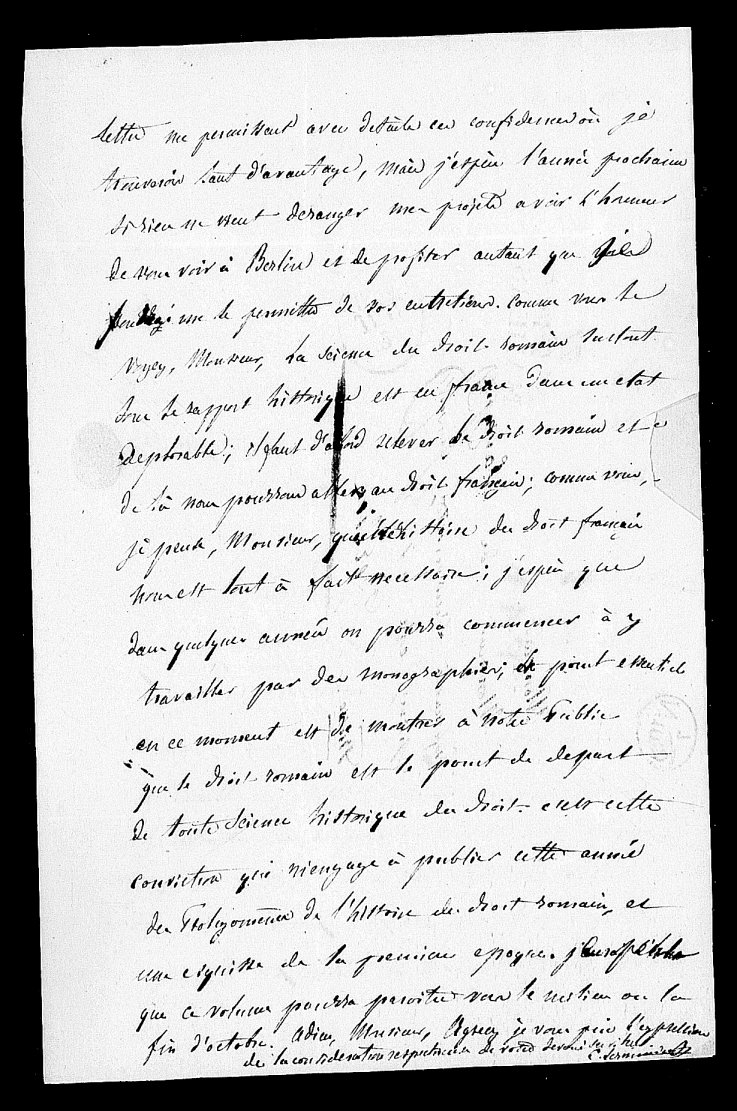 lettre me permissent avec détails ces confidences où je
trouverois tant d'avantage, mais j'espère l'année prochaine
si rien ne vient déranger mes projets avoir l'honneur
de vous voir à Berlin et de profiter autant que
me le permettre de vos entretiens. comme vous le
voyez, Monsieur, la science du droit romain surtout
sous le rapport historique est en france dans un etat
deplorable; il faut d'abord relever le droit romain et
de là nous pourrons aller au droit français; comme vous,
je pense, Monsieur, que l'histoire du droit français
nous est tout à fait necessaire; j'espère que
dans quelques années on pourra commencer à y
travailler par des monographies; le point essentiel
en ce moment est de montrer à notre Public
que le droit romain est le point de depart
de toute science historique du droit. c'est cette
conviction qui m'engage à publier cette année
des Prolégomènes de l'histoire du droit romain, et
une esquisse de la premiere epoque.
que ce volume pourra paroitre vers le milieu ou la
fin d'octobre. Adieu, Monsieur, Agréez je vous prie l'expression
de la consideration respectueuse de votre devoué serviteur
E. Lerminier